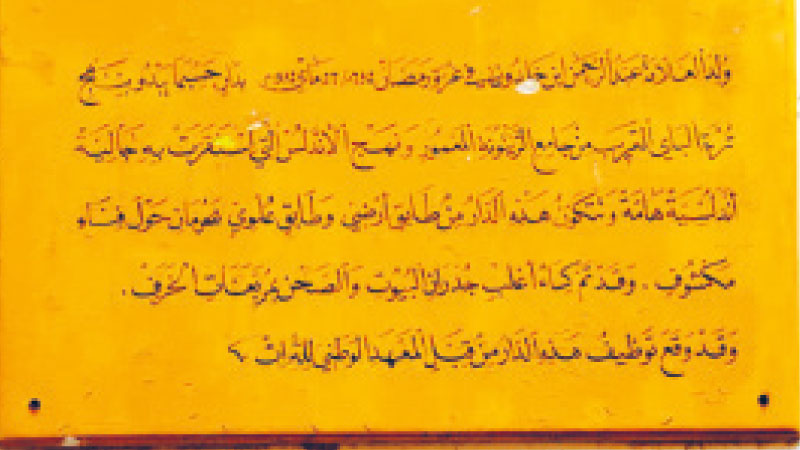 ولد العلامة عبد الرحمن ابن خلدون في غرة رمضان 732 / 27 ماي 1332 بدار حسبما يبدو بنهج
تربة الباي القريب من جامع الزيتونة المعمور ونهج الأندلس التي استقرت به جالية
أندلسية هامة وتتكون هذه الدار من طابق أرضي وطابق علوي يفتحان حول فناء
مكشوف . وقد تم كساء أغلب جدران البيوت والصحن بمربعات الخزف .
وقد وقع توظيف هذه الدار من قبل المعهد الوطني للتراث